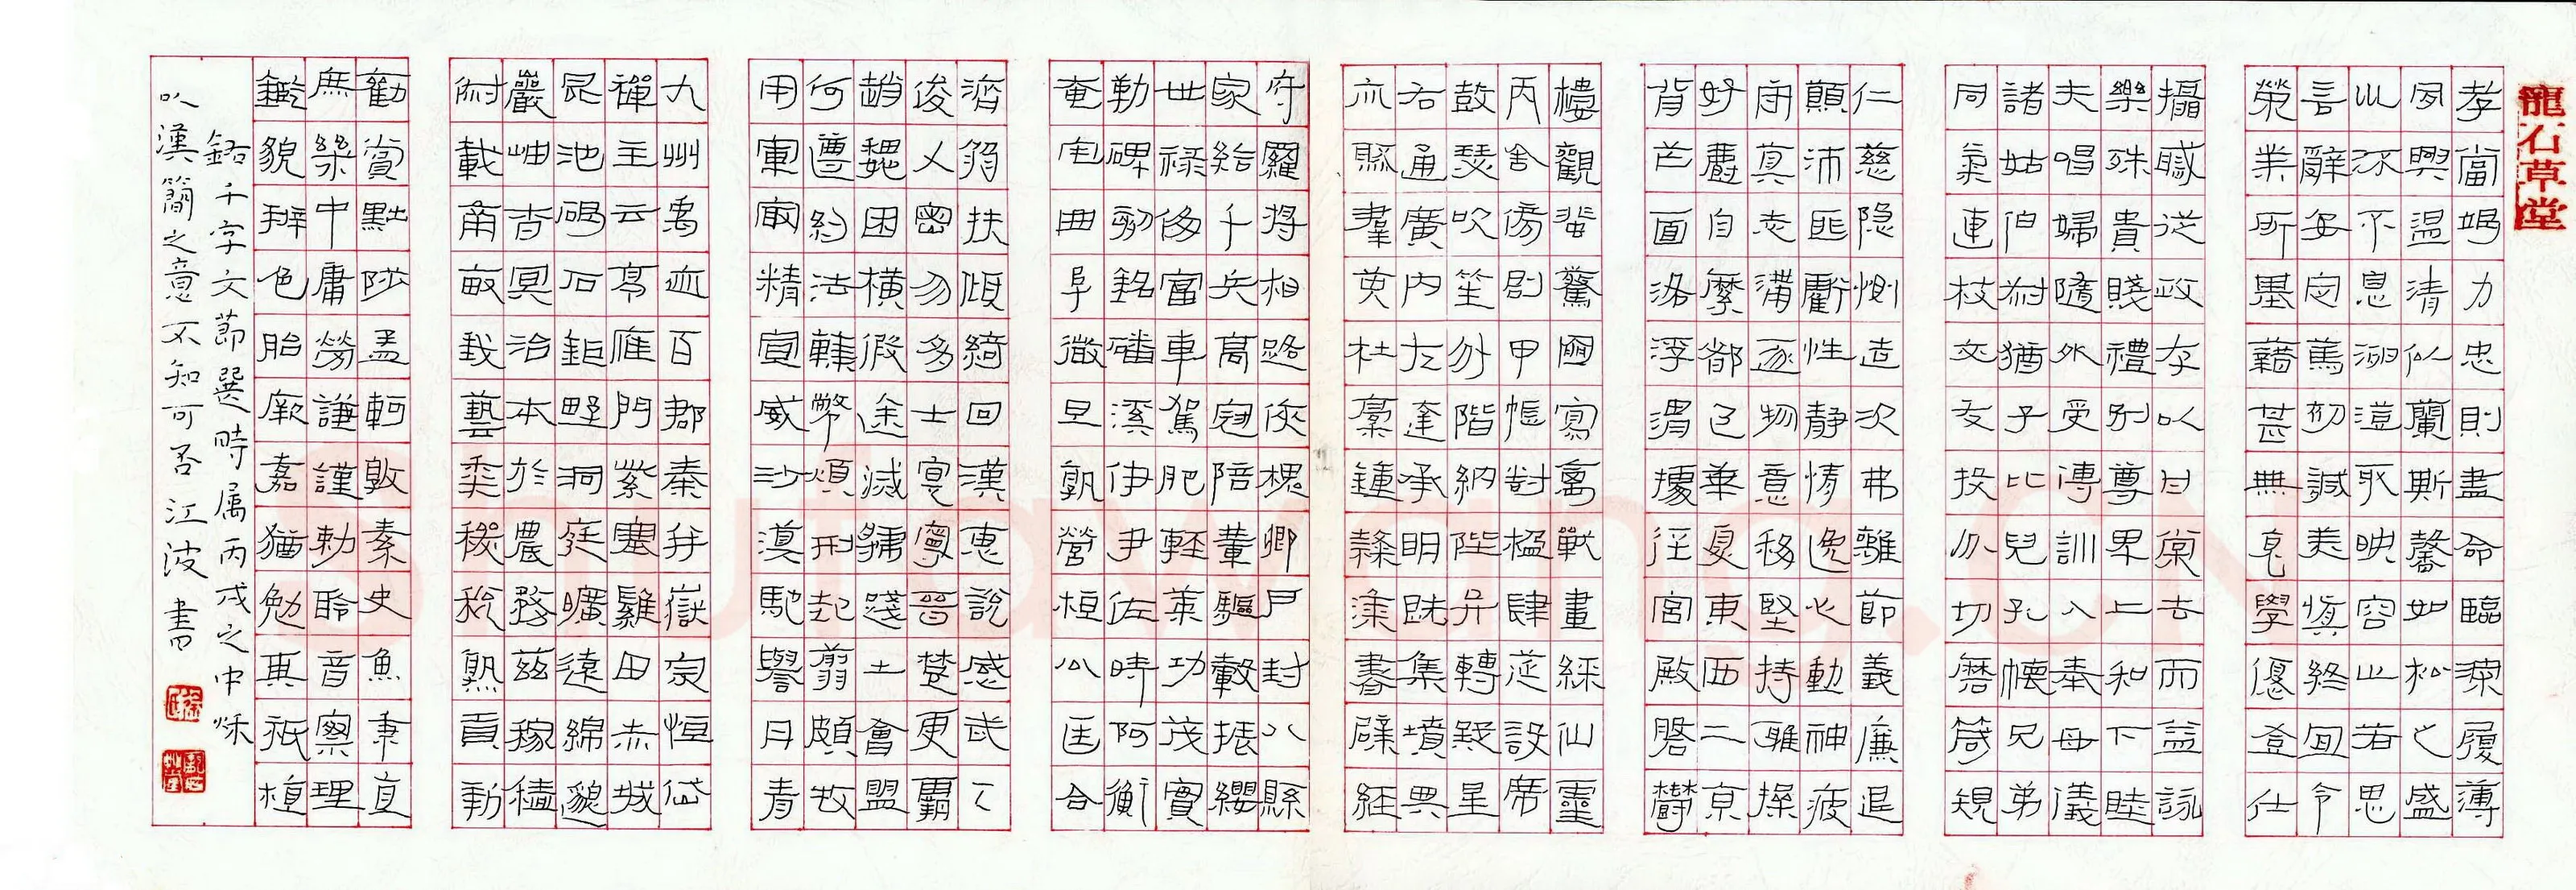 龍石草堂
孝當竭力忠則盡命臨深履薄
夙興溫清似蘭斯馨如松之盛
川流不息淵澄取映容止若思
言辭安定篤初誠美慎終宜令
榮業所基藉甚無竟學優登仕
攝職從政存以甘棠去而益詠
樂殊貴賤禮別尊卑上和下睦
夫唱婦隨外受傅訓入奉母儀
諸姑伯叔猶子比兒孔懷兄弟
同氣連枝交友投分切磨箴規
仁慈隱惻造次弗離節義廉退
顛沛匪虧性靜情逸心動神疲
守真志滿逐物意移堅持雅操
好爵自縻都邑華夏東西二京
背芒面洛浮渭據涇宮殿盤鬱
樓觀飛驚圖寫禽獸畫綵仙靈
丙舍傍啟甲帳對楹肆筵設席
鼓瑟吹笙升階納陛弁轉疑星
右通廣內左達承明既集墳典
亦聚群英杜稾鍾隸漆書壁經
府羅將相路俠槐卿戶封八縣
家給千兵高冠陪輦驅轂振纓
世祿侈富車駕肥輕策功茂實
勒碑刻銘磻溪伊尹佐時阿衡
奄宅曲阜微旦孰營桓公匡合
濟弱扶傾綺回漢惠說感武丁
俊乂密勿多士寔寧晉楚更霸
趙魏困橫假途滅虢踐土會盟
何遵約法韓弊煩刑起翦頗牧
用軍最精宣威沙漠馳譽丹青
九州禹跡百郡秦并嶽宗恒岱
禪主云亭雁門紫塞雞田赤城
昆池碣石鉅野洞庭曠遠綿邈
巖岫杳冥治本於農務茲稼穡
俶載南畝我藝黍稷稅熟貢新
勸賞黜陟孟軻敦素史魚秉直
庶幾中庸勞謙謹勅聆音察理
鑑貌辨色貽厥嘉猷勉其祗植
錄千字文節選時属丙戌之中秋
以漢簡之意不知可否江波書
Shufawang.CN